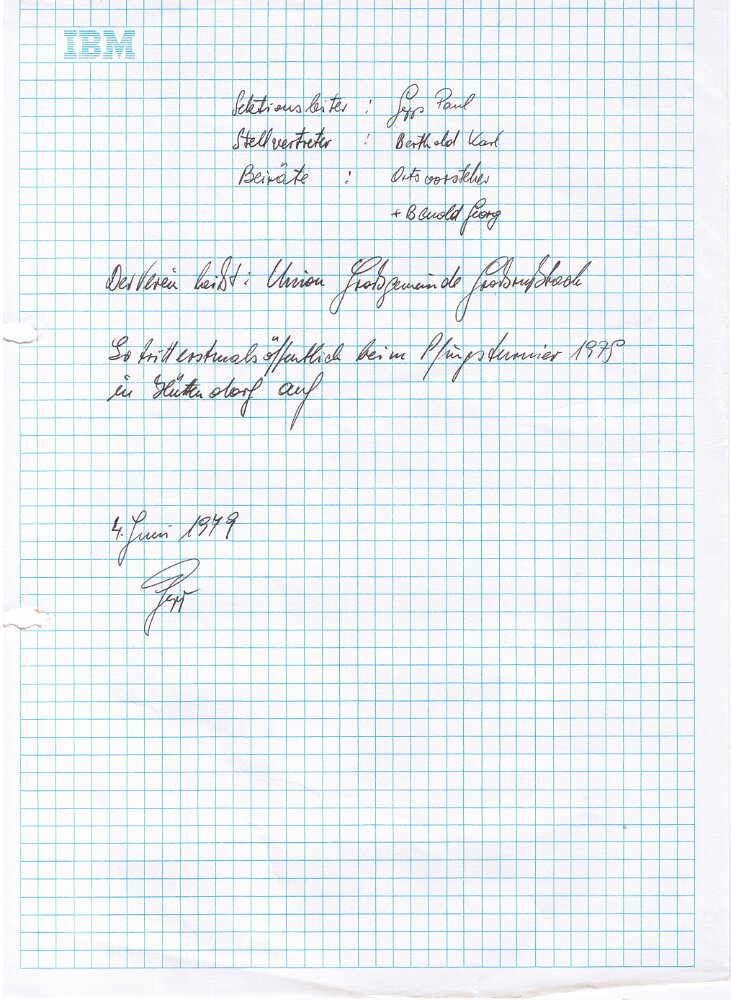 IBM
Sektionsleiter : Gepp Paul
Stellvertreter : Berthold Karl
Beiräte : Ortsvorsteher
+ Georg
Der Verein heißt : Union Großgemeinde Großrußbach
Er tritt erstmals öffentlich beim Pfingstturnier 1979
in Hüttendorf auf
4. Juni 1979
Gepp